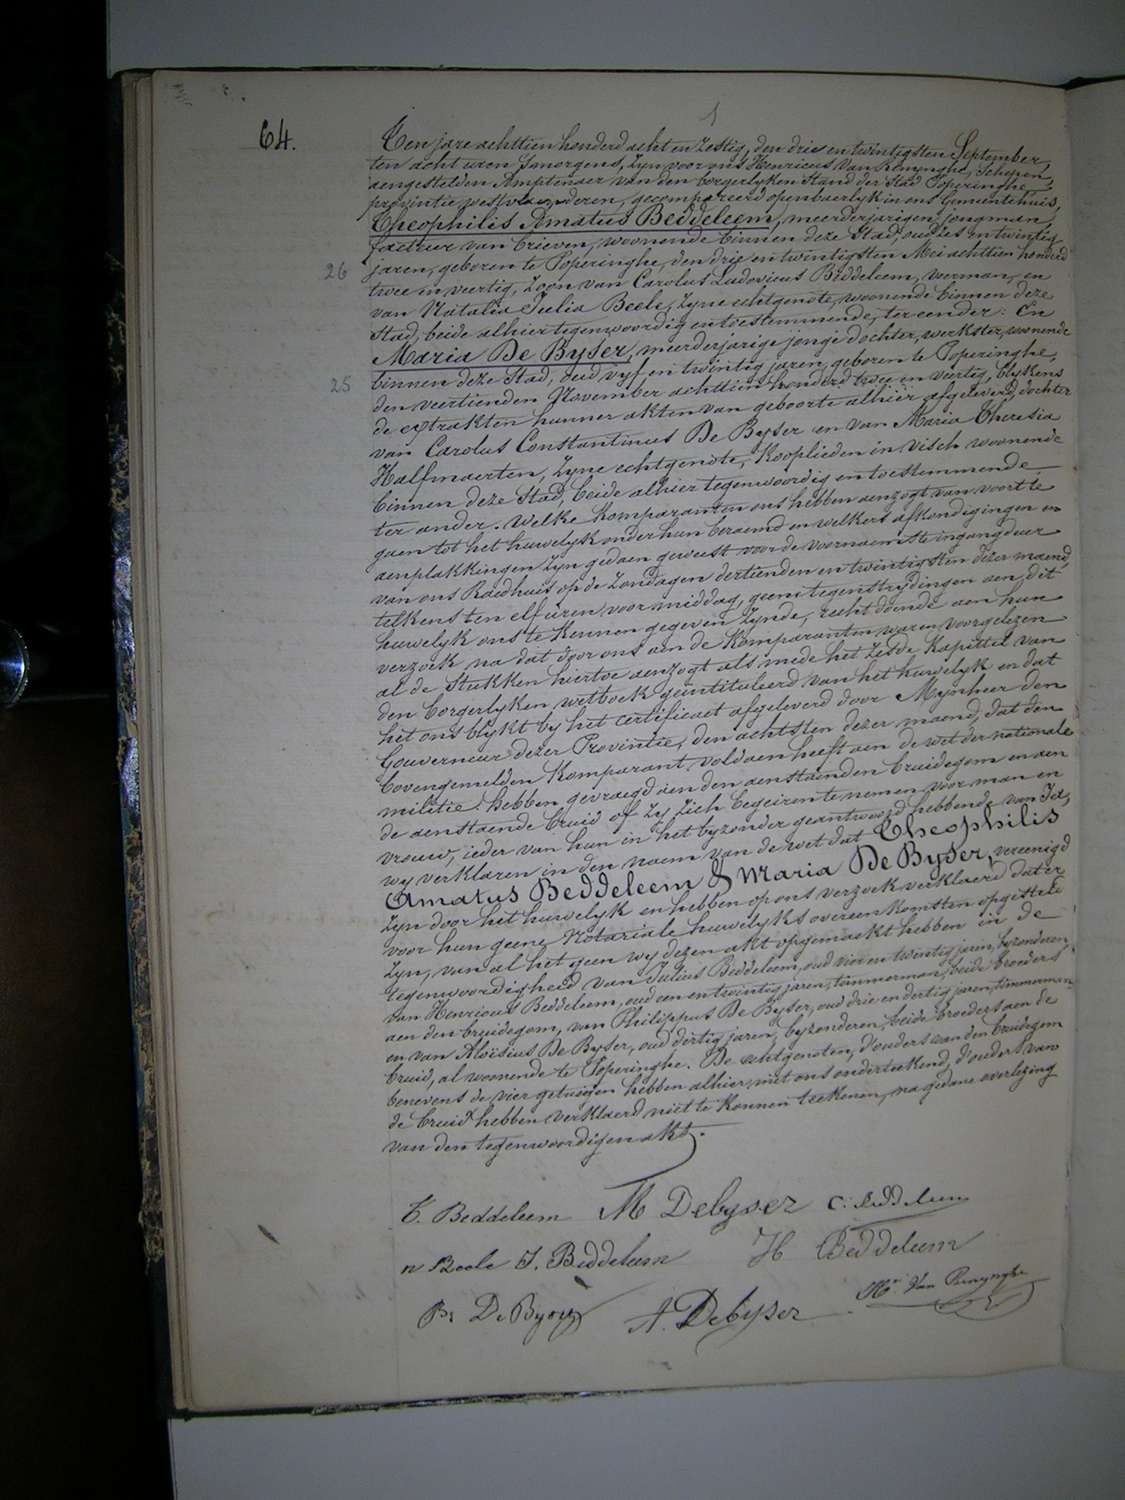 1
64.
Ten jare achttien honderd acht en zestig, den drie en twintigsten September,
ten acht uren s'morgens, zyn voor ons Henricus Van Renynghe, Schepen
aengestelden Amptenaer van den borgerlyken Stand der Stad Poperinghe,
provintie westvlaenderen, gecompareerd openbaerlyk in ons Gemeentehuis,
Theophilis Amatus Beddeleem, meerderjarigen jongman,
facteur van brieven, woonende binnen deze Stad, oud zes en twintig
26 jaren, geboren te Poperinghe, den drie en twintigsten Mei achttien honderd
twee en veertig, zoon van Carolus Ludovicus Beddeleem, voerman, en
van Natalia Julia Beele, zyne echtgenote, woonende binnen deze
Stad, beide alhier tegenwoordig en toestemmende, ter eender: En
Maria De Byser, meerderjarige jonge dochter, werkster, woonende
25 binnen deze Stad, oud vyf en twintig jaren, geboren te Poperinghe,
den veertienden November achttien honderd twee en veertig, blykens
de extrakten hunner akten van geboorte alhier afgeleverd, dochter
van Carolus Constantinus De Byser en van Maria Theresia
Halfmaerten, zyne echtgenote, kooplieden in visch woonende
binnen deze Stad, beide alhier tegenwoordig en toestemmende
ter ander. Welke komparanten ons hebben aenzogt van voort te
gaen tot het huwelyk onder hun beraemd en welkers afkondigingen en
aenplakkingen zyn gedaen geweest voor de voornaemste ingangdeur
van ons Raedhuis op de Zondagen dertienden en twintigsten dezer maend,
telkens ten elf uren voor middag, geene tegenstrydingen aen dit
huwelyk ons te kennen gegeven zynde, recht doende aen hun
verzoek na dat door ons aen de komparanten waren voorgelezen
al de stukken hiertoe aenzogt als mede het zesde kapittel van
den borgerlyken wetboek geïntituleerd van het huwelyk en dat
het ons blykt by het certificaet afgeleverd door Mynheer den
Gouverneur dezer Provintie, den achtsten dezer maend, dat den
bovengemelden komparant voldaen heeft aen de wet der nationale
militie. Hebben gevraegd aen den aenstaenden bruidegom en aen
de aenstaende bruid of zy zich begeiren te nemen voor man en
vrouw, ieder van hun in het byzonder geantwoord hebbende van Ja,
wy verklaren in den naem van de wet dat Theophilis
Amatus Beddeleem & Maria De Byser, vereenigd
zyn door het huwelyk en hebben op ons verzoek verklaerd dat er
voor hun geene Notariale huwelyks overeenkomsten opgesteld
zyn, van al het geen wy dezen akt opgemaekt hebben in de
tegenwoordigheid van Julius Beddeleem, oud vier en twintig jaren, byzonderen
van Henricus Beddeleem, oud een en twintig jaren, timmerman, beide broeders
aen den bruidegom, van Philippus De Byser, oud drie en dertig jaren, timmerman
en van Aloïsius De Byser, oud dertig jaren, byzonderen, beide broeders aen de
bruid, al woonende te Poperinghe. De echtgenoten, d'ouders van den bruidegom
benevens de vier getuigen hebben alhier met ons onderteekend, d'ouders van
de bruid hebben verklaerd niet te konnen teekenen, na gedane overlezing
van den tegenwoordigen akt.
T. Beddeleem M Debyser C. Beddeleem
n Beele J. Beddeleem H Beddeleem
Ps De Byser A. Debyser Hri Van Renynghe